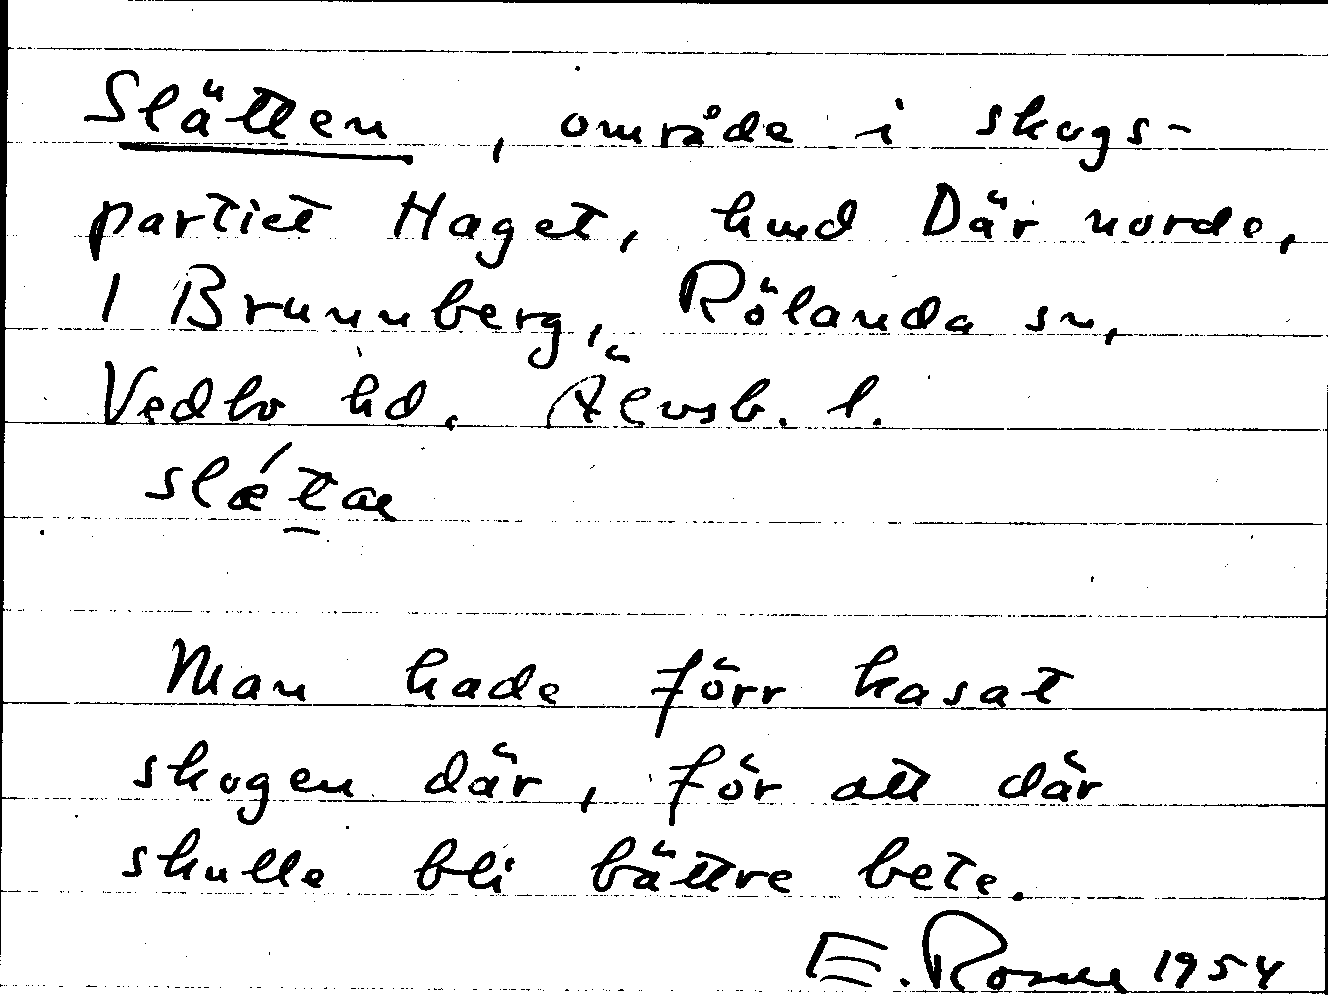 Slätten, område i skogs-
partiet Haget, hmd Där norde,
1 Brunnberg, Rölanda sn,
Vedbo hd. Älvsb. l.
slǽtæ
Man hade förr kasat
skogen där, för att där
skulle bli bättre bete.
E. Rosell 1954